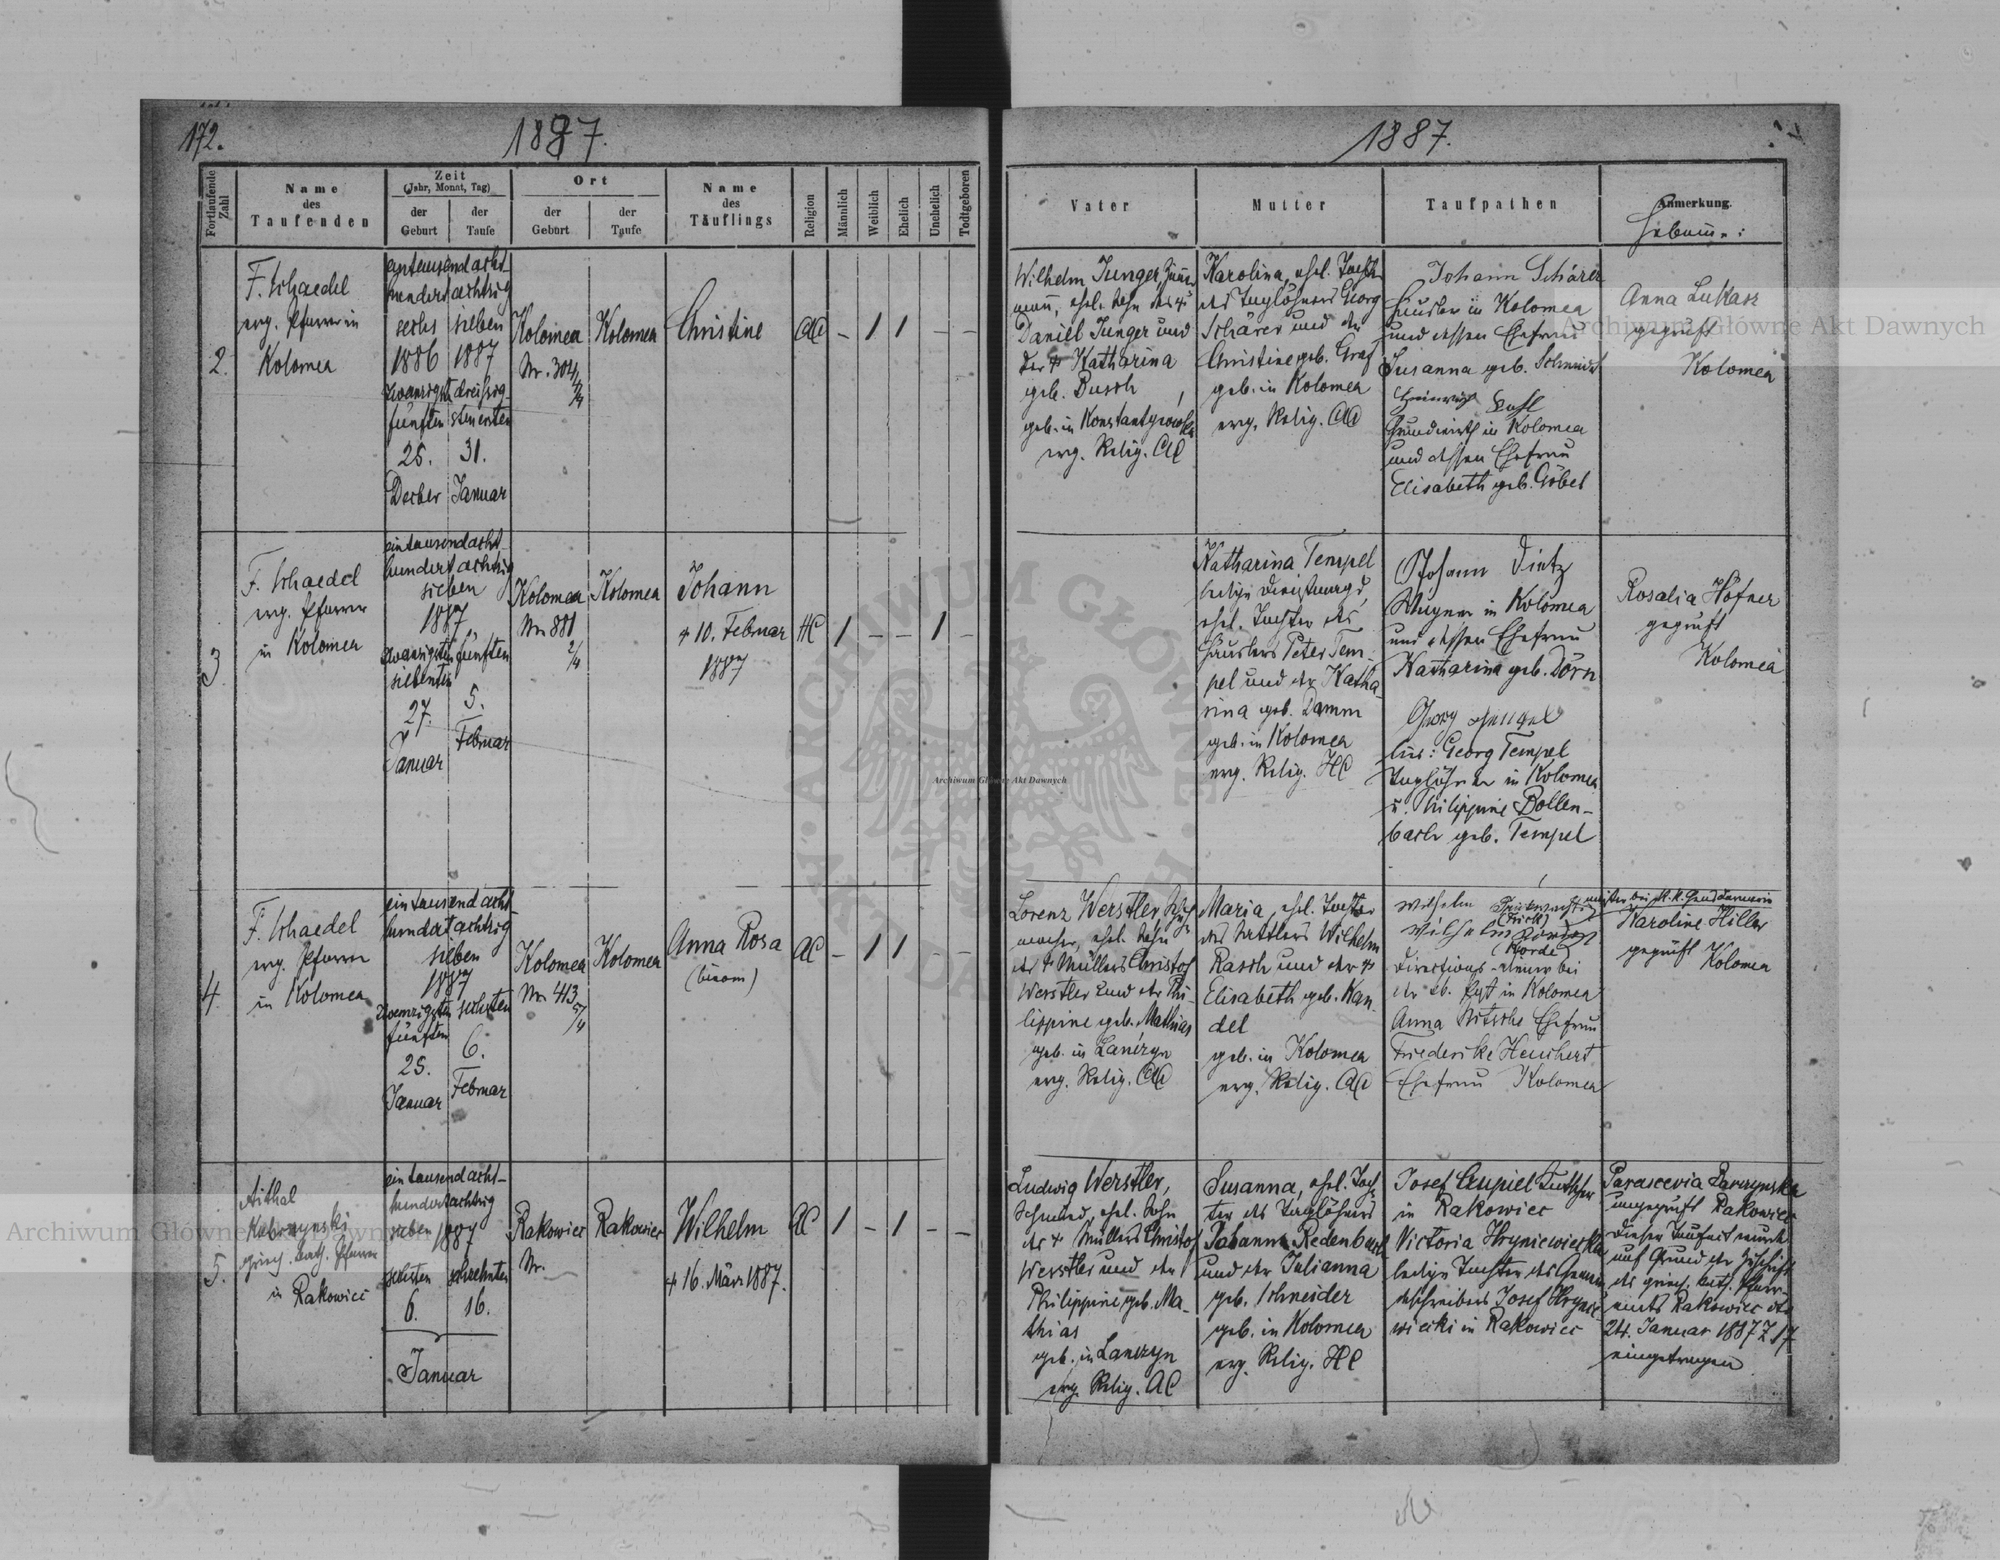 172.
1887.
1887.
Fortlaufende Zahl
Name des Taufenden
Zeit
(Jahr, Monat, Tag)
der Geburt
der Taufe
Ort
der Geburt
der Taufe
Name des Täuflings
Religion
Männlich
Weiblich
Ehelich
Unehelich
Todtgeboren
Vater
Mutter
Taufpathen
Anmerkung.
2.
F. Schaedel
evg. Pfarrer in
Kolomea
eintausend acht-
hundert achtzig
sechs sieben
1886 1887
zwanzigst dreißig-
fünften sten ersten
25. 31.
Decber Januar
Kolomea
Nr. 304
Kolomea
Christine
AC
– 1 1 – –
Wilhelm Junger,
ehel. Sohn des +
Daniel Junger und
der + Katharina
geb. Busch
geb. in
evg. Relig. AC
Karolina, ehel. Tochter
des Taglöhners Georg
Schärer und der
Christine geb. Graf
geb. in Kolomea
evg. Relig. AC
Johann Schärer
Häusler in Kolomea
und dessen Ehefrau
Susanna geb. Schmidt
Heinrich
Grundwirth in Kolomea
und dessen Ehefrau
Elisabeth geb. Göbel
Anna Lukasz
geprüft
Kolomea
3
F. Schaedel
evg. Pfarrer
in Kolomea
eintausend acht-
hundert achtzig
sieben
1887
zwanzigsten fünften
siebenten
27. 5.
Januar Februar
Kolomea
Nr. 881
2/4
Kolomea
Johann
+ 10. Februar
1887
HC
1 – – 1 –
Katharina Tempel
ledige Dienstmagd,
ehel. Tochter des
Häuslers Peter Tem-
pel und der Katha-
rina geb. Damm
geb. in Kolomea
evg. Relig. HC
Johann Dietz
Wagner in Kolomea
und dessen Ehefrau
Katharina geb. Dörn
Georg Tempel
Georg Tempel
Taglöhner in Kolomea
u. Philippine Bollen-
bach geb. Tempel
Rosalia Höfner
geprüft
Kolomea
4.
F. Schaedel
evg. Pfarrer
in Kolomea
eintausend acht-
hundert achtzig
sieben
1887
zwanzigsten sechsten
fünften
25. 6.
Januar Februar
Kolomea
Nr. 413
5/4
Kolomea
Anna Rosa
AC
– 1 1 –
Lorenz Werstler,
macher, ehel. Sohn
des + Müllers Christof
Werstler und der Phi-
lippine geb. Mathias
geb. in Lanczyn
evg. Relig. AC
Maria, ehel. Tochter
des Sattlers Wilhelm
Rasch und der +
Elisabeth geb. Kan-
del
geb. in Kolomea
evg. Relig. AC
Wilhelm
(Frick)
Wilhelm
(Korde)
in Kolomea
Anna Ehefrau
Friederike
Ehefrau Kolomea
Karoline Hiller
geprüft Kolomea
5.
griech. kath. Pfarrer
in Rakowiec
eintausend acht-
hundert achtzig
sieben 1887
sechsten sechzehnten
6. 16.
Januar
Rakowiec
Nr.
Rakowiec
Wilhelm
+ 16. März 1887.
AC
1 – 1 – –
Ludwig Werstler,
Schmied, ehel. Sohn
des + Müllers Christof
Werstler und der
Philippine geb. Ma-
thias
geb. in Lanczyn
evg. Relig. AC
Susanna, ehel. Toch-
ter des Taglöhners
Johann Redenbach
und der Julianna
geb. Schneider
geb. in Kolomea
evg. Relig. HC
Josef
in Rakowiec
Victoria Hryniewiecka
ledige Tochter des Gemein-
deschreibers Josef Hrynie-
wiecki in Rakowiec
ungeprüft Rakowiec
Dieser Taufact wurde
auf Grund der Zuschrift
des griech. kath. Pfarr-
amts Rakowiec dto
24. Januar 1887 Z 17
eingetragen
Archiwum Główne Akt Dawnych
Archiwum Główne Akt Dawnych
Archiwum Główne Akt Dawnych